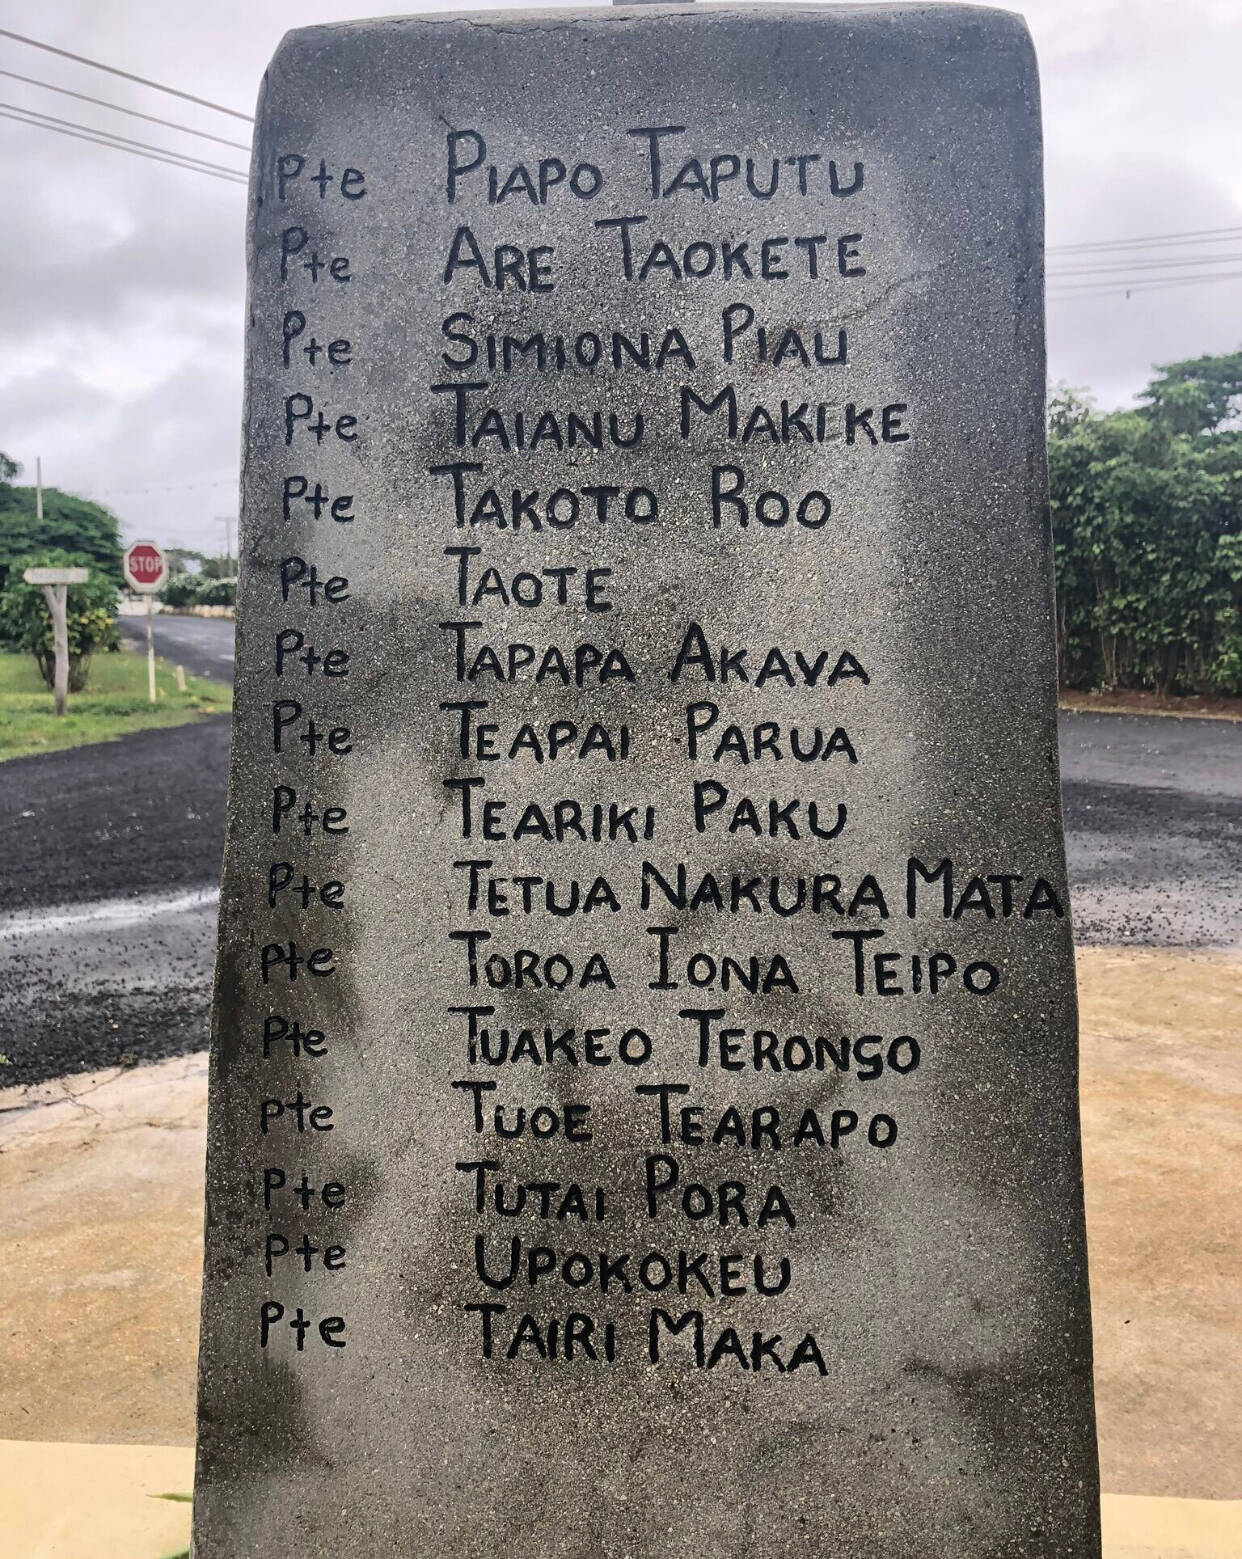 Pte PIAPO TAPUTU
Pte ARE TAOKETE
Pte SIMIONA PIAU
Pte TAIANU MAKEKE
Pte TAKOTO ROO
Pte TAOTE
Pte TAPAPA AKAVA
Pte TEAPAI PARUA
Pte TEARIKI PAKU
Pte TETUA NAKURA MATA
Pte TOROA IONA TEIPO
Pte TUAKEO TERONGO
Pte TUOE TEARAPO
Pte TUTAI PORA
Pte UPOKOKEU
Pte TAIRI MAKA
STOP